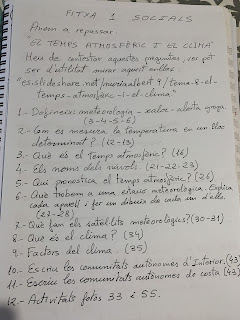 FITXA 1 SOCIALS
Anem a repassar
"EL TEMPS ATMOSFÈRIC I EL CLIMA"
Heu de contestar aquestes preguntes, vos pot
ser d'utilitat mirar aquest enllaç
"es.slideshare.net/nuriaalbert9/tema-8-el-
temps-atmosfric-i-el-clima"
1.- Defineix meteorologia - xaloc - aborta
(3-4-5-6)
2.- Com es mesura la temperatura en un lloc
determinat? (12-13)
3.- Què és el temps atmosfèric? (16)
4.- Els noms dels núvols (21-22-23)
5.- Qui pronostica el temps atmosfèric? (26)
6.- Que trobem a una estació meteorològica. Explica
cada aparell i fer un dibuix de cada un d'ells.
(27-28)
7.- Que fan els satèl·lits meteorològics? (30-31)
8.- Què és el clima? (34)
9.- Factors del clima (35)
10.- Escriu les comunitats autònomes d'Interior. (43)
11.- Escriu les comunitats autònomes de costa (43)
12.- Activitats fotos 33 i 55.